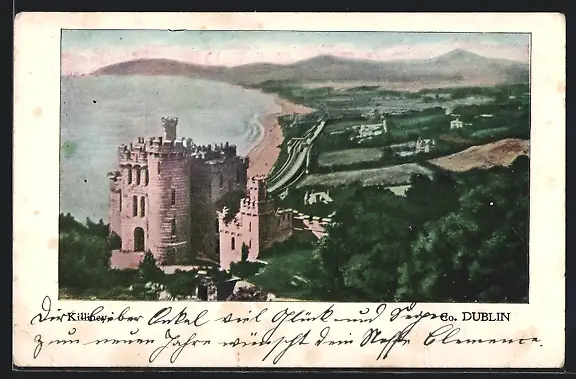 Killiney, Co. DUBLIN
Dir lieber Onkel viel Glück und Segen
zum neuen Jahre wünscht dem Neffe Clemence.